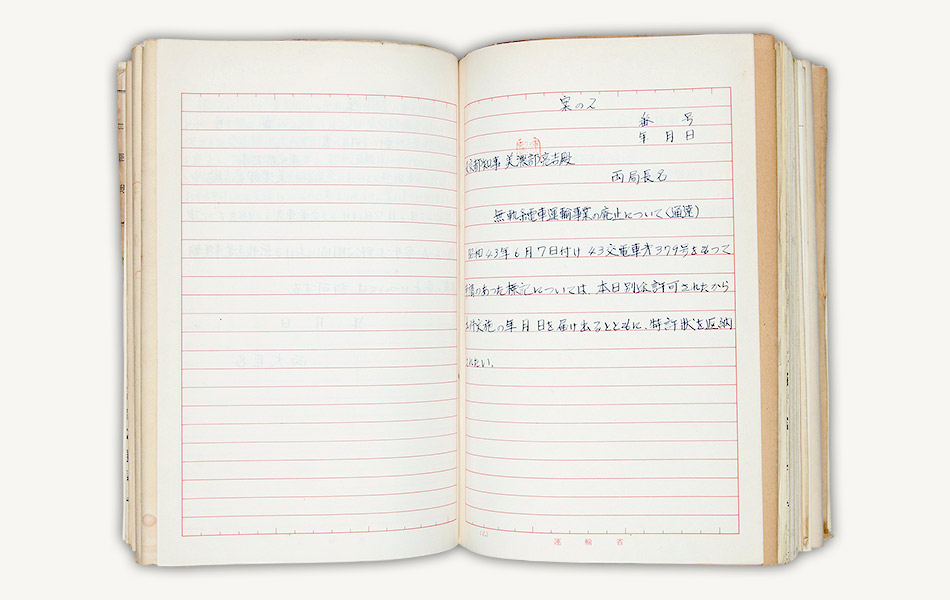 案の2
番 号
年 月 日
京都知事 美濃部亮吉殿
両局長名
無軌条電車運輸事業の廃止について(通達)
昭和43年6月7日付け43交電車才379号をもつて
申請のあつた標記については、本日別途許可されたから
実施の年月日を届け出るとともに、特許状を返納
されたい。
運輸省